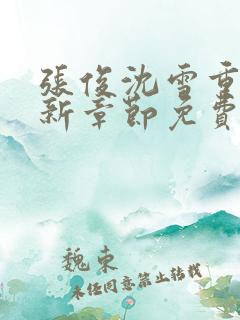 張俊沈雪重
新章節免費
魏東
未經同意禁止轉載